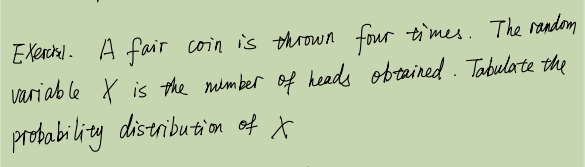 Exercise1. A fair coin is thrown four times. The random
variable X is the number of heads obtained. Tabulate the
probability distribution of X